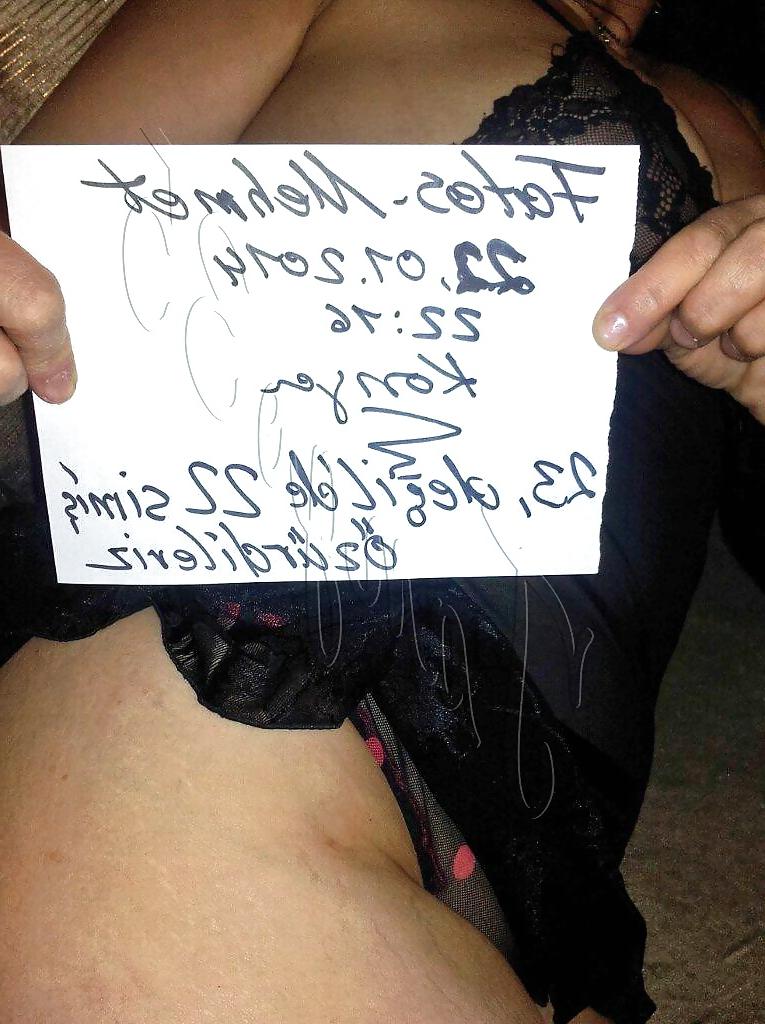 Fatoş-Mehmet
22.01.2014
22:16
Konya
23, değilde 22 simiş
özürdileriz